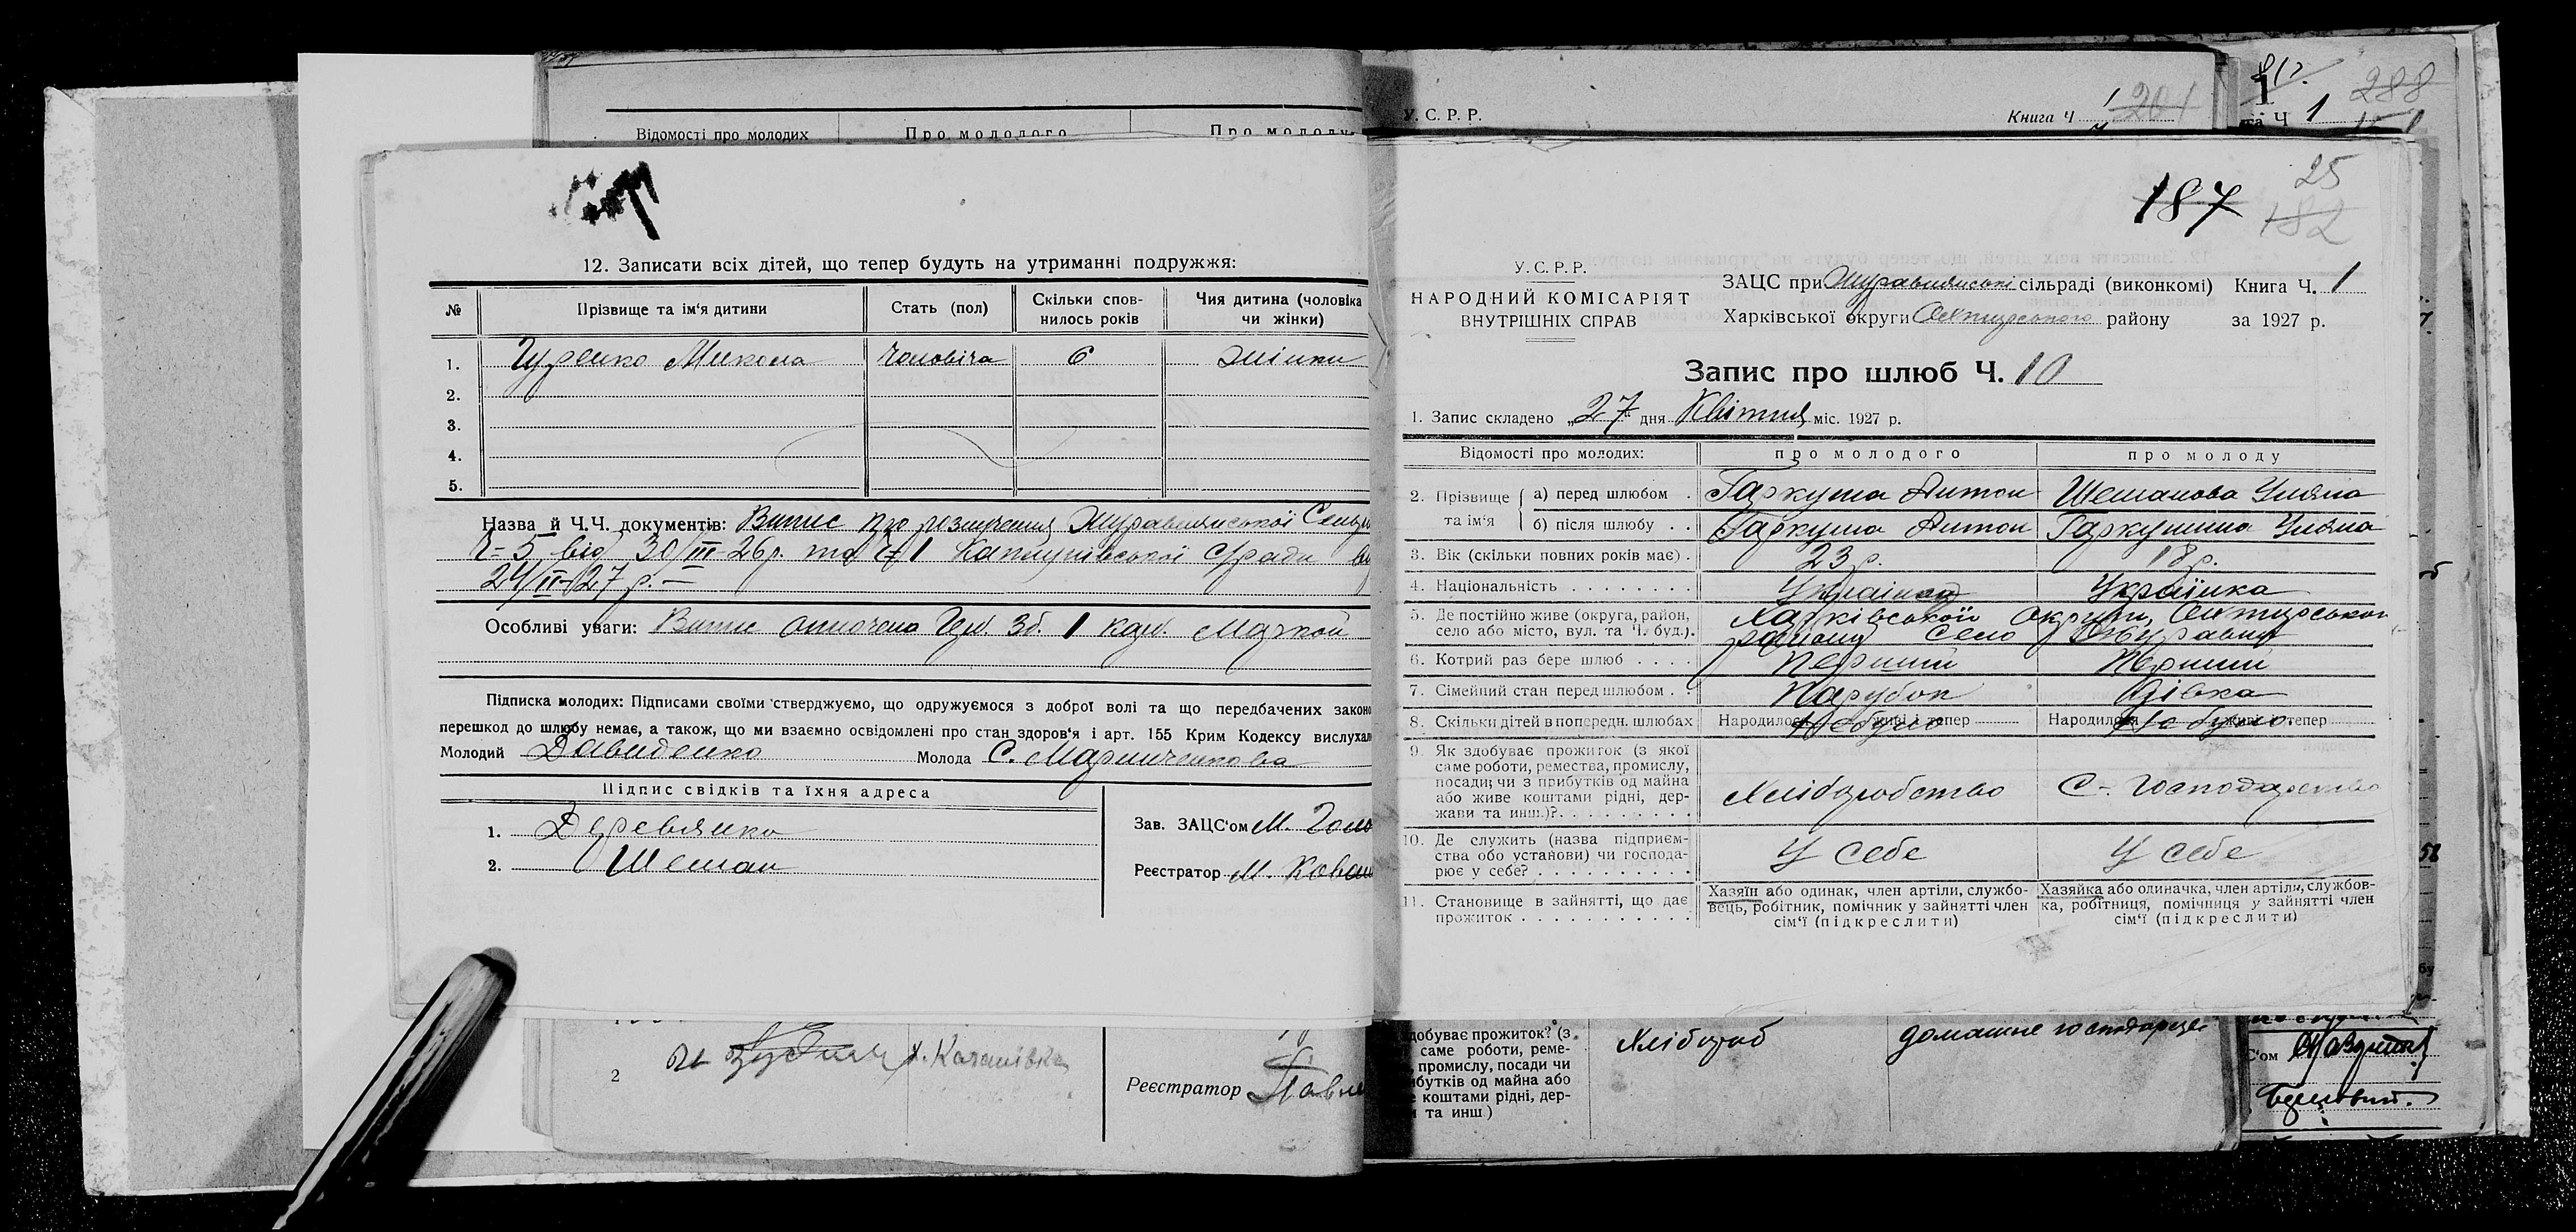 Відомості про молодих Про молодого Про молоду
12. Записати всіх дітей, що тепер будуть на утриманні подружжя:
№ Прізвище та ім'я дитини Стать (пол) Скільки спов- Чия дитина (чоловіка
нилось років чи жінки)
1. Микола чоловіча 6 жінки
2.
3.
4.
5.
Назва й Ч.Ч. документів: Витис про розлучення Журавлянської
Ч-5 від 30/III-26р. та Ч 1 від
24/II-27 р. —
Особливі уваги: оплочено Герб. Зб. 1 карб. маркой
Підписка молодих: Підписами своїми стверджуємо, що одружуємося з доброї волі та що передбачених законо
перешкод до шлюбу немає, а також, що ми взаємно освідомлені про стан здоров'я і арт. 155 Крим Кодексу вислухал
Молодий Давиденко Молода С. Маринченкова
Підпис свідків та їхня адреса
1. Деревянко
2. Шеман
Зав. ЗАЦС'ом М.
Реєстратор М.
2
Реєстратор
У. С. Р. Р. Книга Ч 1 201
Ч 1
288
25
187 182
У. С. Р. Р.
НАРОДНИЙ КОМІСАРІЯТ
ВНУТРІШНІХ СПРАВ
ЗАЦС при Журавлянські сільраді (виконкомі) Книга Ч. 1
Харківської округи району за 1927 р.
Запис про шлюб Ч. 10
1. Запис складено „27" дня Квітня міс. 1927 р.
Відомості про молодих: про молодого про молоду
2. Прізвище та ім'я а) перед шлюбом . Гаркуша Антон Шеманова Уляна
б) після шлюбу . . Гаркуша Антон Гаркушина Уляна
3. Вік (скільки повних років має) . 23 р. 18 р.
4. Національність . . . . . . . . Українець Українка
5. Де постійно живе (округа, район, Харківської Округи,
село або місто, вул. та Ч. буд.). району село
6. Котрий раз бере шлюб . . . . Перший Перший
7. Сімейний стан перед шлюбом . . Парубок Дівка
8. Скільки дітей в попередн. шлюбах Народилося живі і тепер Не було Народилося живі і тепер Не було
9. Як здобуває прожиток (з якої
саме роботи, ремества, промислу,
посади; чи з прибутків од майна
або живе коштами рідні, дер-
жави та инш.)? . . . . . . . . . Хліборобство С-господарство
10. Де служить (назва підприєм-
ства або установи) чи господа-
рює у себе? . . . . . . . . . . У себе У себе
11. Становище в зайнятті, що дає
прожиток . . . . . . . . . . . .
Хазяїн або одинак, член артіли, службо-
вець, робітник, помічник у зайнятті член
сім'ї (підкреслити)
Хазяйка або одиначка, член артіли, службов-
ка, робітниця, помічниця у зайнятті член
сім'ї (підкреслити)
добуває прожиток? (з
саме роботи, реме-
промислу, посади чи
ибутків од майна або
коштами рідні, дер-
та инш)
Хлібороб